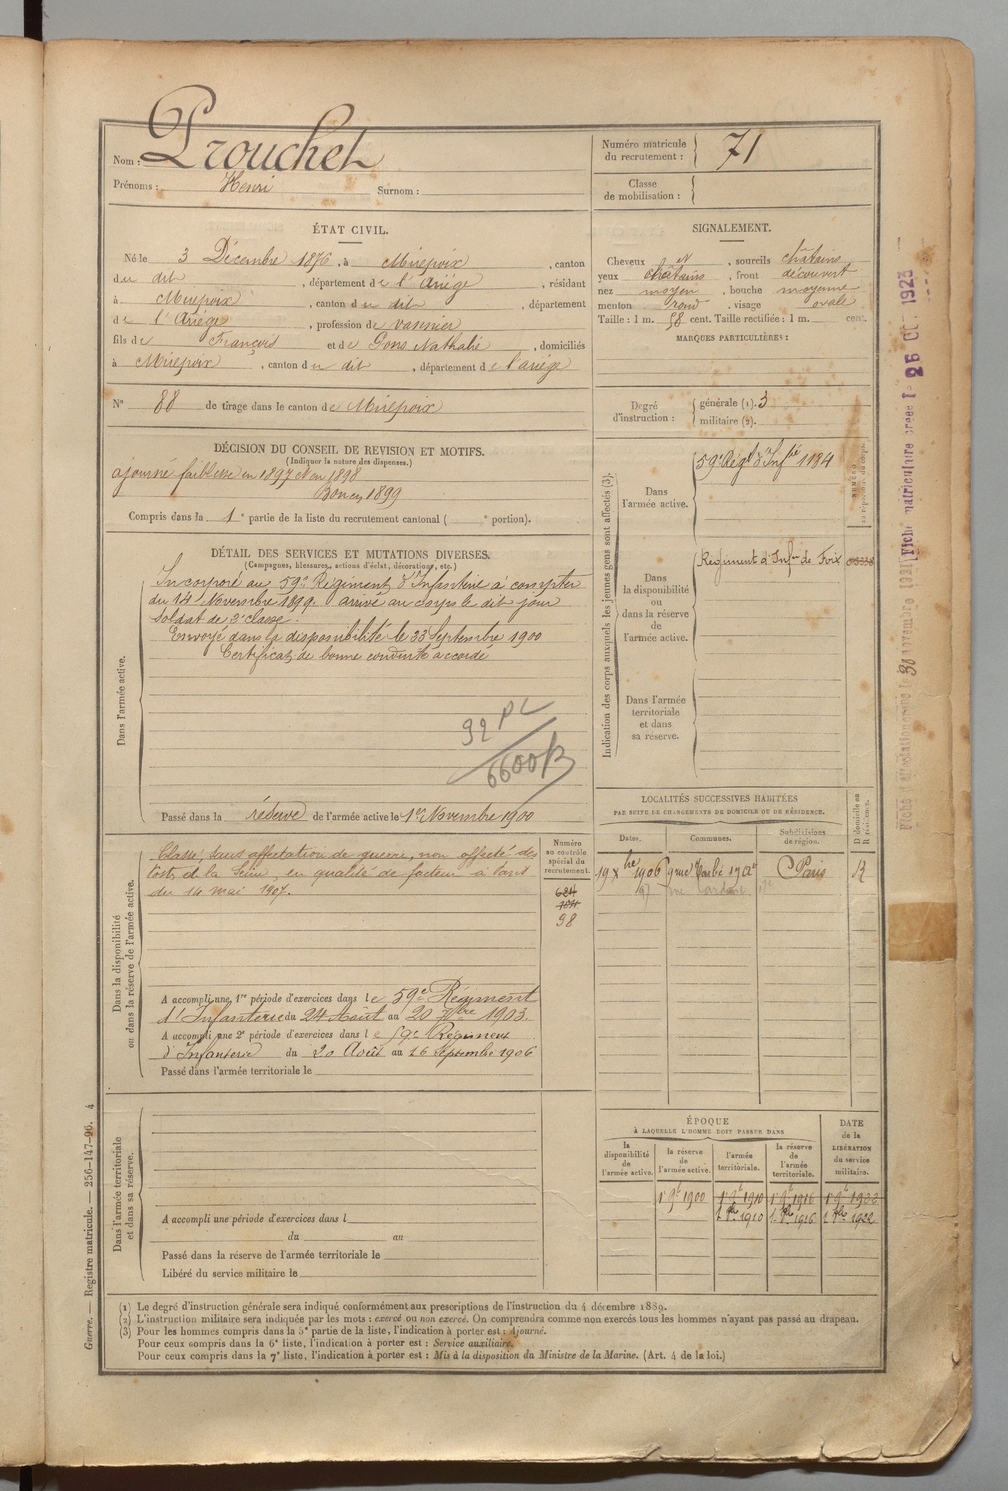 Nom : Prouchet
Prénoms : Henri Surnom :
Numéro matricule du recrutement : 71
Classe de mobilisation :
ÉTAT CIVIL.
Né le 3 Décembre 1876, à Mirepoix, canton
du dit, département de l'Ariège, résidant
à Mirepoix, canton du dit, département
de l'Ariège, profession de
fils de François et de Pons Nathalie, domiciliés
à Mirepoix, canton du dit, département de l'ariège
N° 88 de tirage dans le canton de Mirepoix
SIGNALEMENT.
Cheveux et, sourcils châtains
yeux châtains, front découvert
nez moyen, bouche moyenne
menton rond, visage ovale
Taille : 1 m. 58 cent. Taille rectifiée : 1 m. cent.
MARQUES PARTICULIÈRES :
Degré d'instruction : générale (1). 3
militaire (2).
DÉCISION DU CONSEIL DE REVISION ET MOTIFS.
(Indiquer la nature des dispenses.)
ajourné faiblesse en 1897 et en 1898
Bon en 1899
Compris dans la 1e partie de la liste du recrutement cantonal ( e portion).
DÉTAIL DES SERVICES ET MUTATIONS DIVERSES.
(Campagnes, blessures, actions d'éclat, décorations, etc.)
Dans l'armée active.
Incorporé au 59e Régiment d'Infanterie à compter
du 14 Novembre 1899. arrivé au corps le dit jour
Soldat de 2e classe.
Envoyé dans la disponibilité le Septembre 1900
Certificat de bonne conduite accordé
92 PL
6600 B
Passé dans la réserve de l'armée active le 1er Novembre 1900
Indication des corps auxquels les jeunes gens sont affectés (3).
Dans l'armée active.
59e Régt d'Inftie 1184
NUMÉRO au répertoire du corps.
Dans la disponibilité ou dans la réserve de l'armée active.
Régiment d'Infie de Foix
Dans l'armée territoriale et dans sa réserve.
LOCALITÉS SUCCESSIVES HABITÉES
PAR SUITE DE CHANGEMENTS DE DOMICILE OU DE RÉSIDENCE.
Dates. Communes. Subdivisions de région. D domicile ou R résidence.
19 Xbre 1906 9 rue Barbé 17 ar Paris R
Dans la disponibilité ou dans la réserve de l'armée active.
Classé, sans affectation de guerre, non affecté des
de la Seine, en qualité de facteur à
du 14 mai 1907.
Numéro au contrôle spécial du recrutement.
98
A accompli une 1re période d'exercices dans le 59e Régiment
d'Infanterie du 24 Août au 20 7bre 1903.
A accompli une 2e période d'exercices dans le 59e Régiment
d'Infanterie du 20 Août au 16 Septembre 1906
Passé dans l'armée territoriale le
Dans l'armée territoriale et dans sa réserve.
A accompli une période d'exercices dans l
du au
Passé dans la réserve de l'armée territoriale le
Libéré du service militaire le
ÉPOQUE
À LAQUELLE L'HOMME DOIT PASSER DANS
la disponibilité de l'armée active. la réserve de l'armée active. l'armée territoriale. la réserve de l'armée territoriale. DATE de la LIBÉRATION du service militaire.
1er 9bre 1900 1er 9bre 1910 1er 9bre 1916 1er 9bre 1922
1910 1916 1922
(1) Le degré d'instruction générale sera indiqué conformément aux prescriptions de l'instruction du 4 décembre 1889.
(2) L'instruction militaire sera indiquée par les mots : exercé ou non exercé. On comprendra comme non exercés tous les hommes n'ayant pas passé au drapeau.
(3) Pour les hommes compris dans la 5e partie de la liste, l'indication à porter est : Ajourné.
Pour ceux compris dans la 6e liste, l'indication à porter est : Service auxiliaire.
Pour ceux compris dans la 7e liste, l'indication à porter est : Mis à la disposition du Ministre de la Marine. (Art. 4 de la loi.)
Guerre. — Registre matricule. — 256-147-96. 4
Fiche matriculaire créée le 26 OCT. 1923